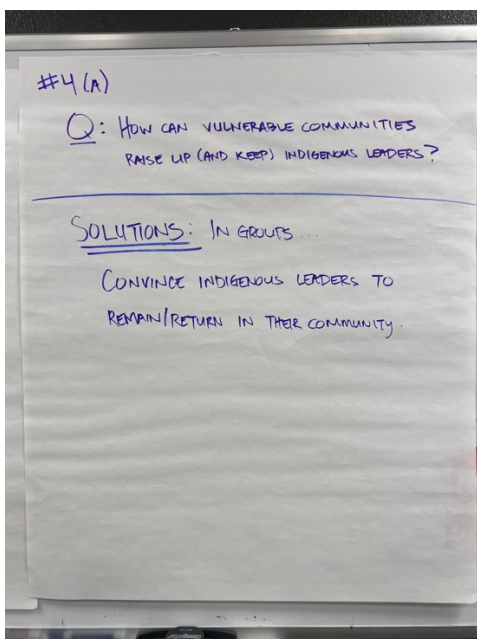 #4 (A)
Q: HOW CAN VULNERABLE COMMUNITIES
RAISE UP (AND KEEP) INDIGENOUS LEADERS?
SOLUTIONS: IN GROUPS...
CONVINCE INDIGENOUS LEADERS TO
REMAIN/RETURN IN THEIR COMMUNITY.